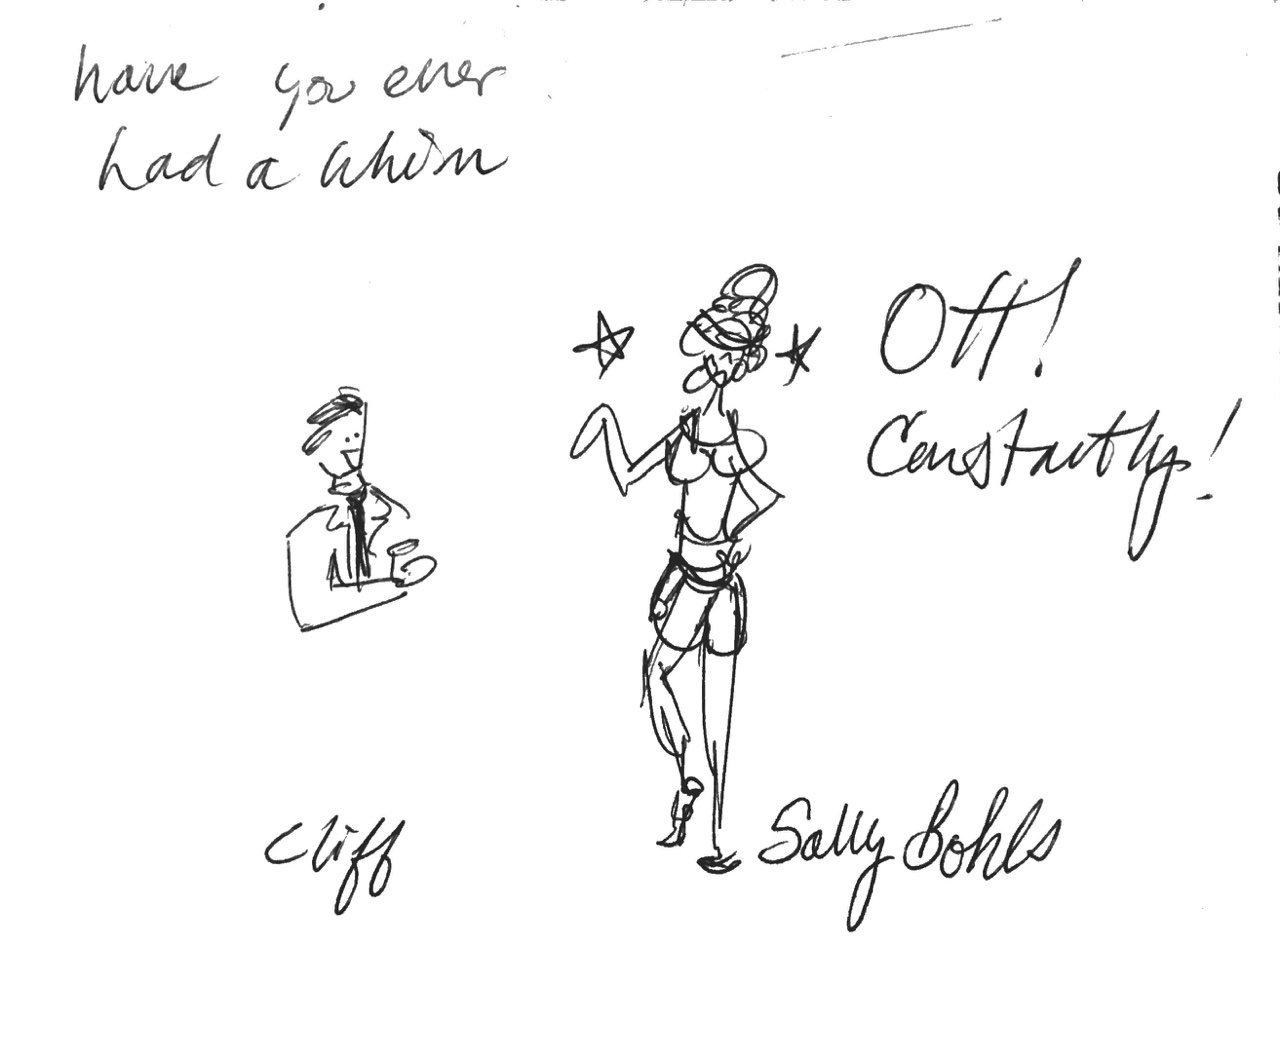 have you ever
had a whim
OH!
Constantly!
Cliff
Sally Bohls